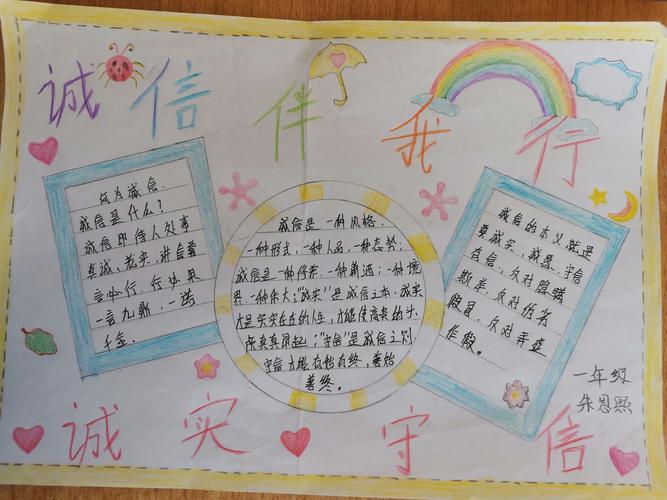 诚信伴我行
何为诚信
诚信是什么?
诚信即待人处事
真诚、老实、讲信誉
言必行、行必果
一言九鼎,一诺
千金.
诚信是一种风格.
一种形式,一种人品,一种态势;
诚信是一种修养,一种潇洒;一种境
界,一种伟大;"诚实"是诚信之本,诚实
才是实实在在的人生,才能使高贵的头
真真昂起;"守信"是诚信之则
守信才能有始有终、善始
善终。
诚信的本义就是
要诚实、诚恳、守信
有信,反对隐瞒
欺诈、反对伪劣
假冒、反对弄虚
作假。
一年级
朱恩熙
诚实守信